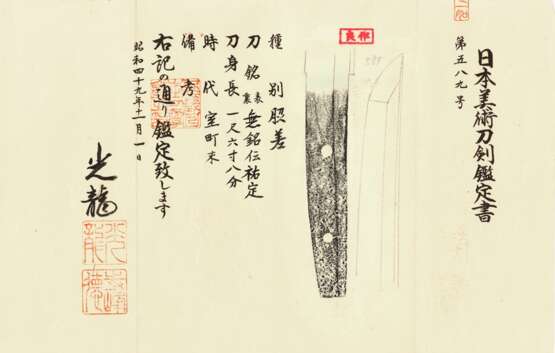 日本美術刀剣鑑定書
第五八九号
良作
種別 脇差
刀銘 表裏 無銘仁祐定
刀身長 一尺六寸八分
時代 室町末
備考
右記の通り鑑定致します
昭和四十九年十一月一日
光龍